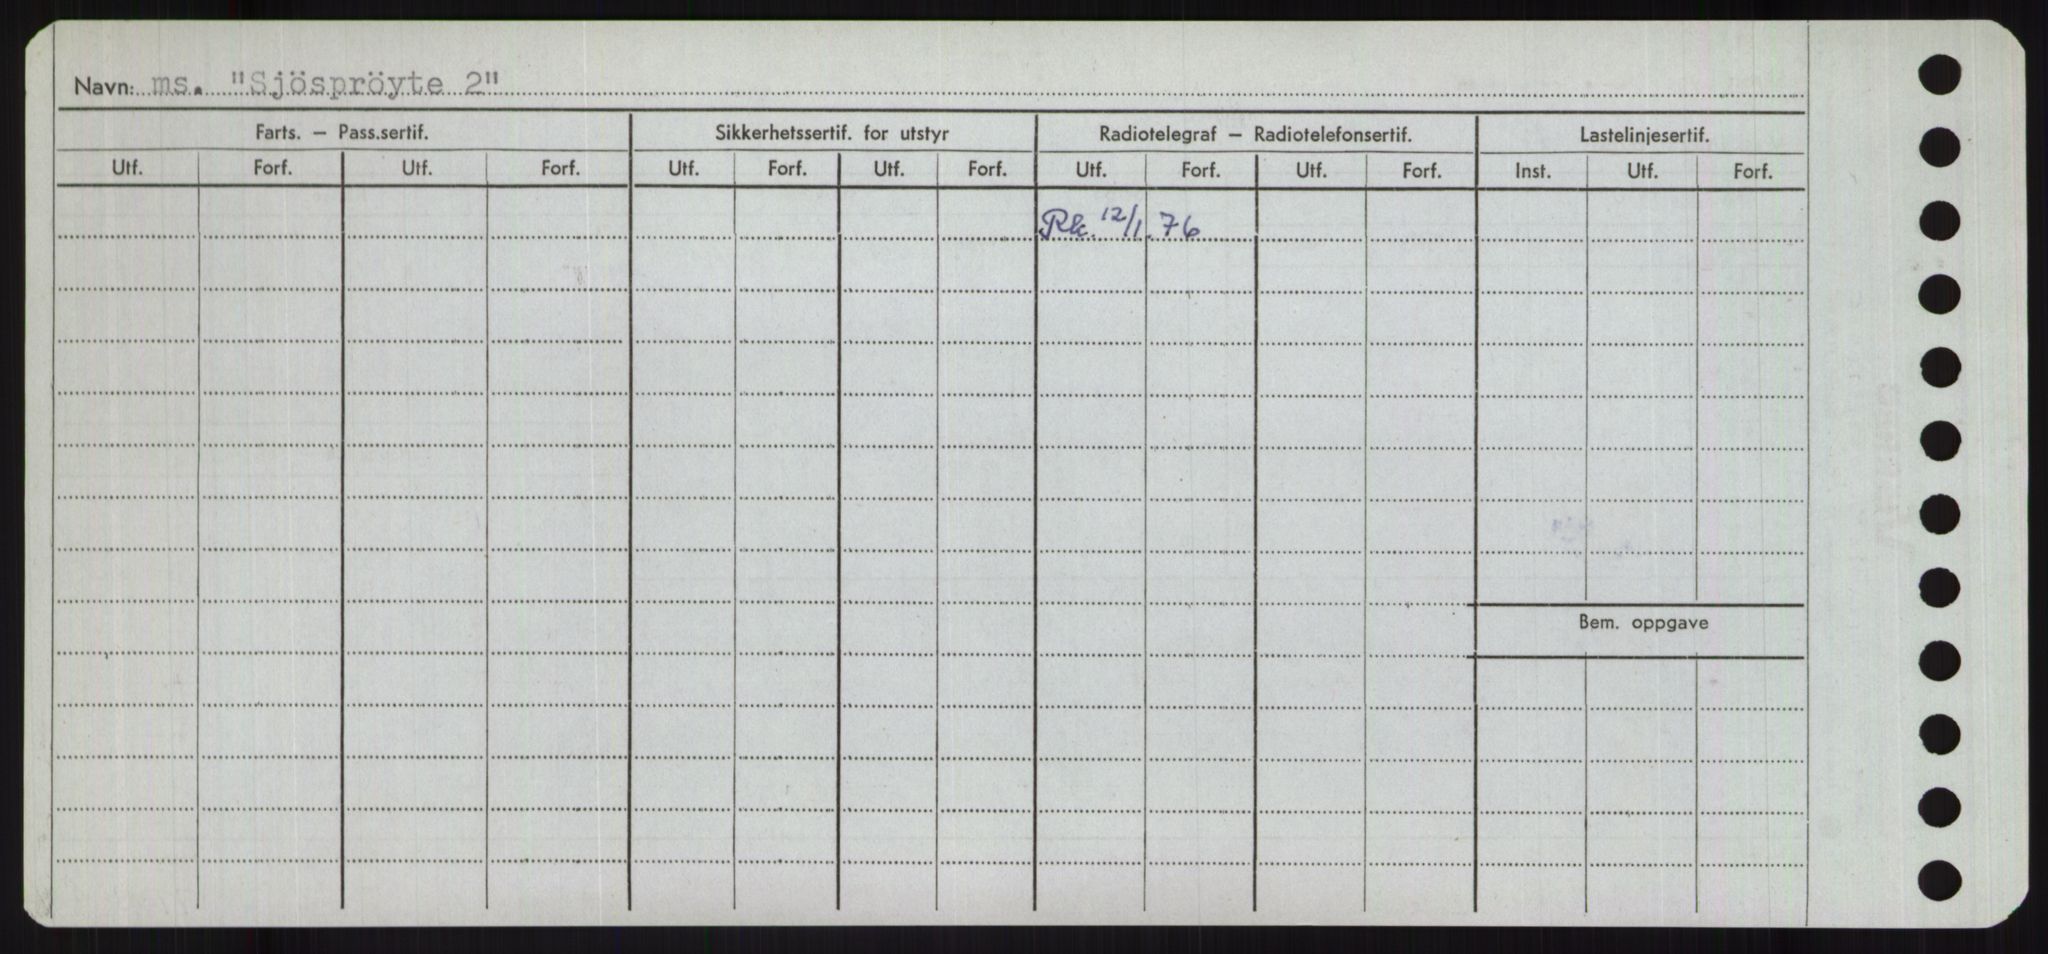 Navn: ms. "Sjöspröyte 2"
Farts. – Pass.sertif. Sikkerhetssertif. for utstyr Radiotelegraf – Radiotelefonsertif. Lastelinjesertif.
Utf. Forf. Utf. Forf. Utf. Forf. Utf. Forf. Utf. Forf. Utf. Forf. Inst. Utf. Forf.
Rk. 12/1.76
Bem. oppgave